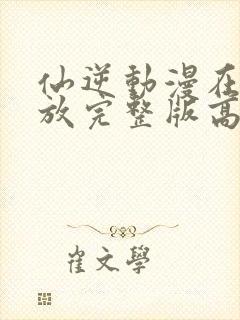 仙逆動漫在
放完整版高
崔文學